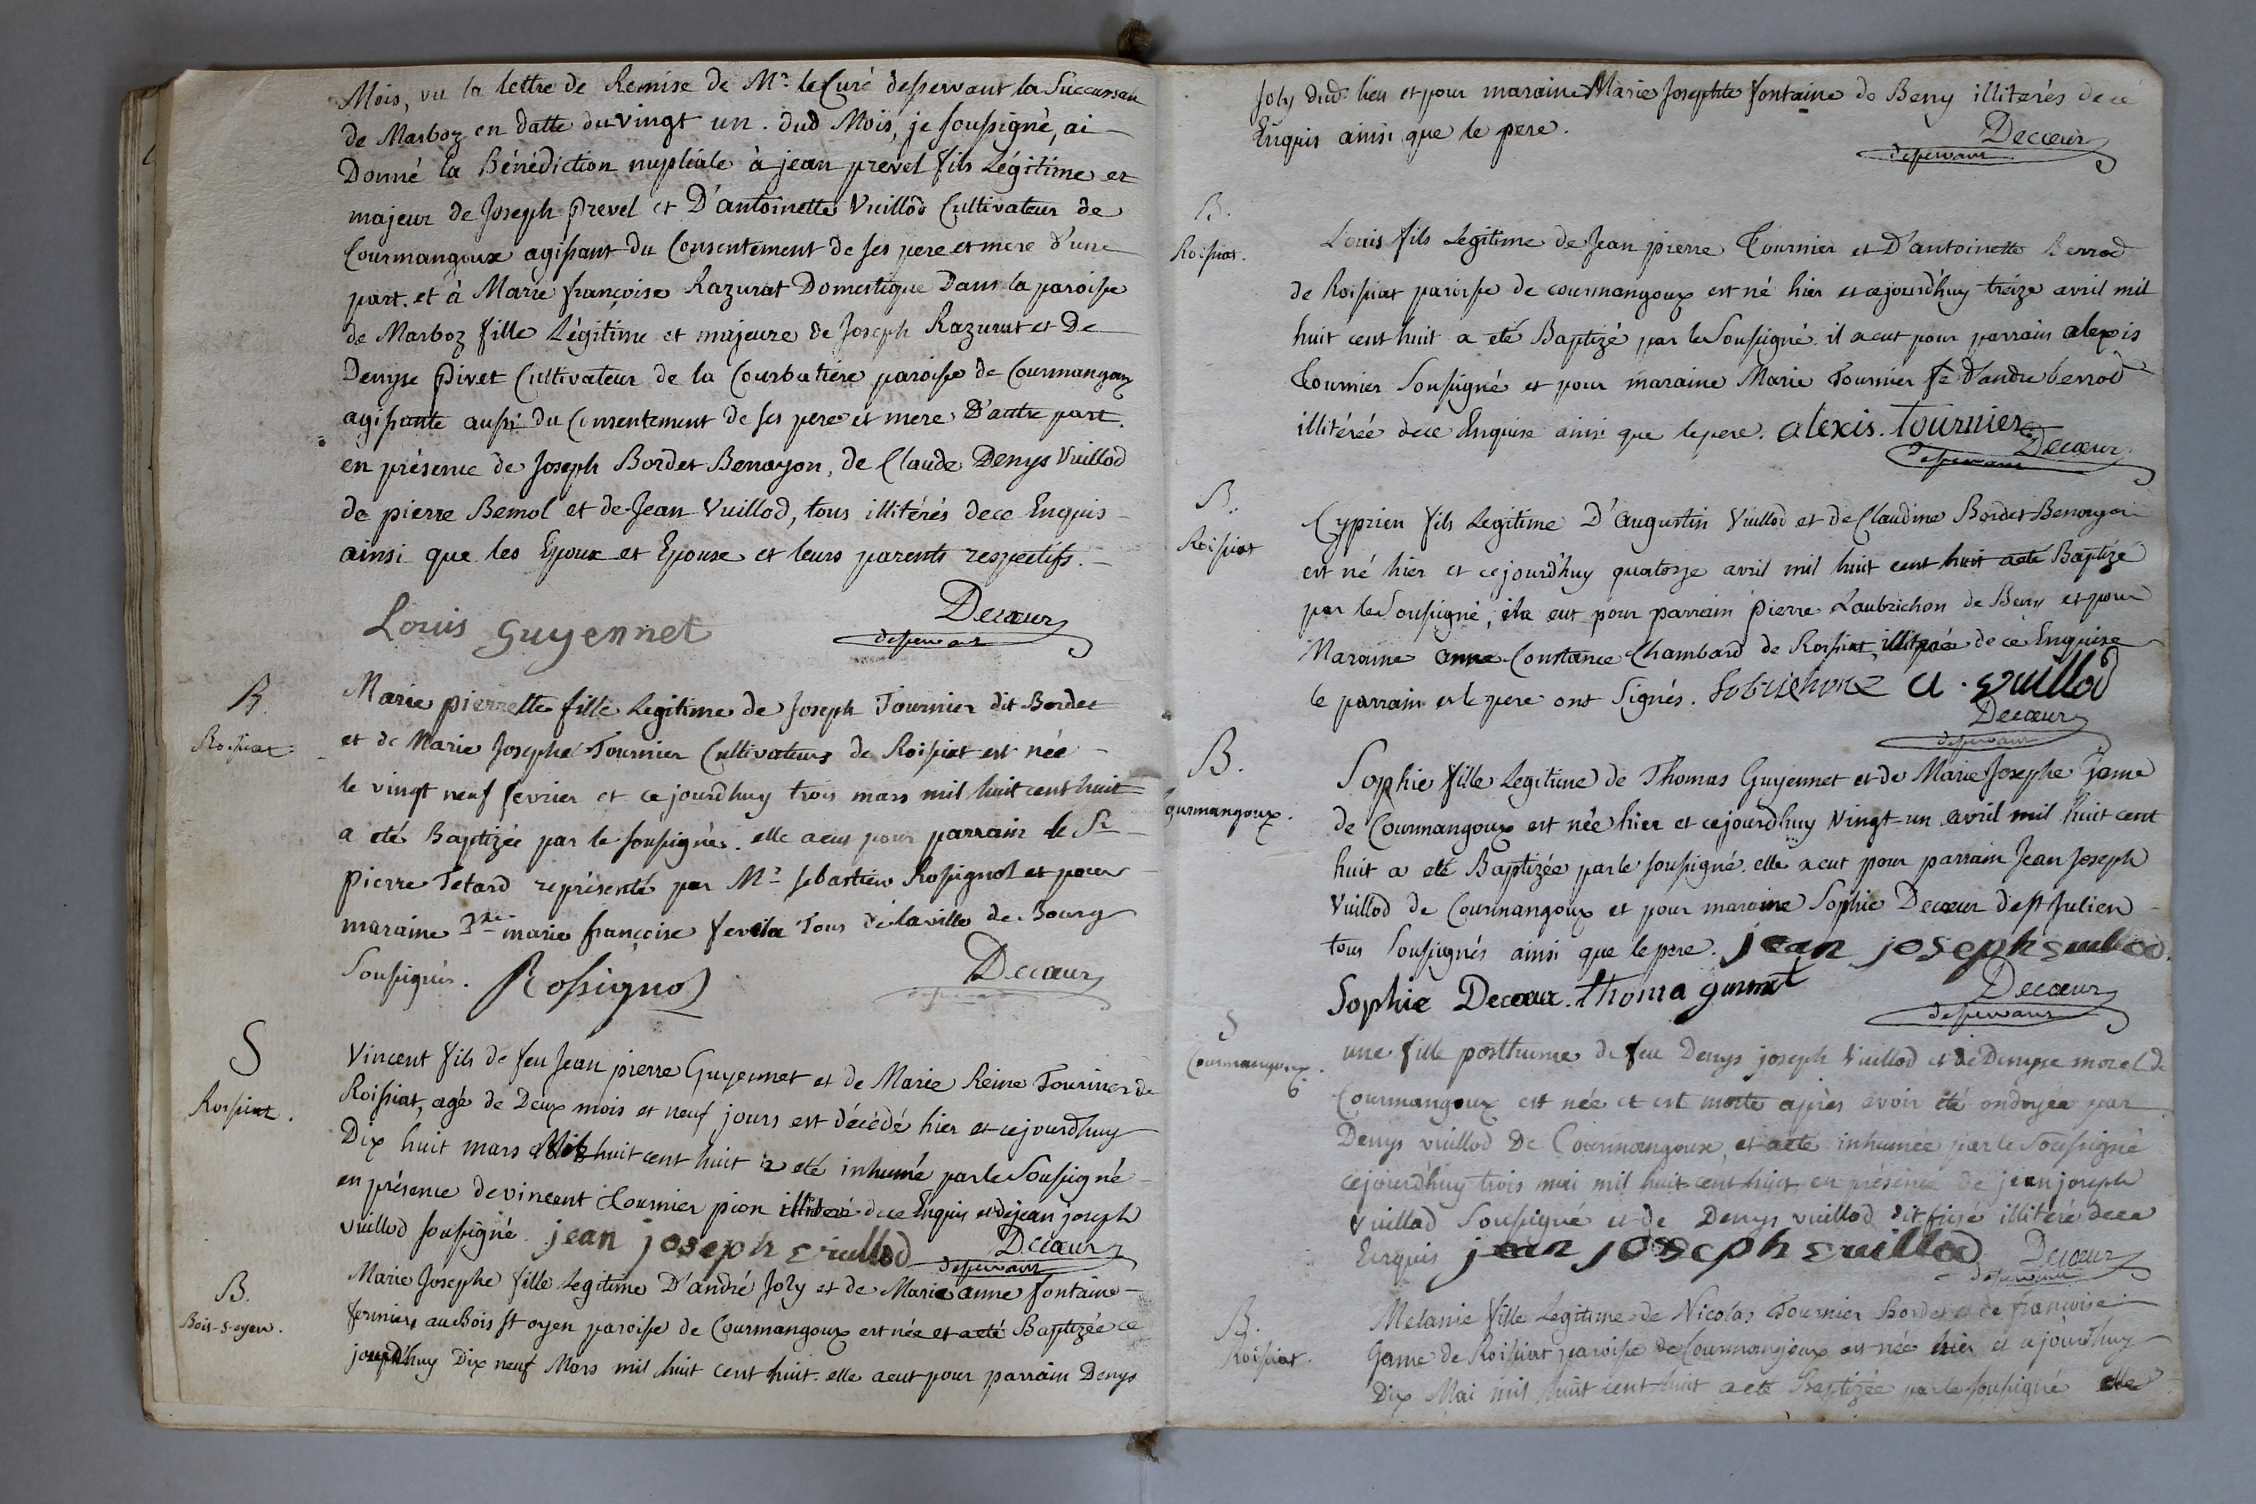 Mois, vu la lettre de Remise de Mr. le Curé desservant la Succursale
de Marboz en datte du vingt un. dud Mois, je soussigné, ai
Donné la Bénédiction nuptiale à jean prevel fils Légitime et
majeur de Joseph prevel et D'antoinette Vuillod Cultivateur de
Courmangoux agissant du Consentement de ses pere et mere d'une
part. et à Marie françoise Razurat Domestique Dans la paroisse
de Marboz fille Légitime et majeure de Joseph Razurat et De
Denyse Pivet Cultivateur de la Courbatiere paroisse de Courmangoux
agissante aussi du Consentement de ses pere et mere D'autre part.
en présence de Joseph Bordet Benayon, de Claude Denys Vuillod
de pierre Bemol et de Jean Vuillod, tous illitérés de ce Enquis
ainsi que les Epoux et Epouse et leurs parents respectifs.
Louis guyennet
Decœur
desservant
B.
Roissiat
Marie pierrette fille Legitime de Joseph Tournier dit Bordet
et de Marie Josephe Tournier Cultivateurs de Roissiat est née
le vingt neuf fevrier et cejourdhuy trois mars mil huit cent huit
a eté Baptizée par le soussigné. elle a eu pour parrain le Sr
pierre Tetard représenté par Mr. sebastien Rossignol et pour
maraine marie françoise tous de la ville de Bourg
Soussignés. Rossignol
Decœur
desservant
S
Roissiat.
Vincent fils de feu Jean pierre Guyennet et de Marie Reine Tournier de
Roissiat, agé de Deux mois et neuf jours est décédé hier et cejourdhuy
Dix huit mars Mil huit cent huit a eté inhumé par le Soussigné
en présence de vincent Tournier pion illiteré de ce Enquis et de jean joseph
vuillod soussigné. jean joseph vuillod
Decœur
desservant
B.
Bois-S-oyen.
Marie Josephe fille Legitime D'andré Joly et de Marie anne fontaine
fermiers au Bois St oyen paroisse de Courmangoux est née et a eté Baptizée ce
jourd'huy Dix neuf Mars mil huit cent huit. elle a eut pour parrain Denys
Joly dud. lieu et pour maraine Marie Josephte fontaine de Beny illiterés de ce
Enquis ainsi que le pere.
Decœur
desservant
B.
Roissiat.
Louis fils Legitime de Jean pierre Tournier et D'antoinette Berrod
de Roissiat paroisse de courmangoux est né hier et cejourd'huy treize avril mil
huit cent huit a eté Baptizé par le Soussigné. il a eut pour parrain alexis
Tournier Soussigné et pour maraine Marie Tournier fe d'andre berrod
illitérée de ce Enquise ainsi que le pere. alexis. tournier
Decœur
desservant
B.
Roissiat
Cyprien fils Legitime D'augustin Vuillod et de Claudine Bordet Benayon
est né hier et cejourd'huy quatorze avril mil huit cent huit a eté Baptizé
par le Soussigné, il a eut pour parrain pierre Laubrichon de Beny et pour
Maraine anne Constance Chambard de Roissiat, illiterée de ce Enquise
le parrain et le pere ont Signés. Lobrichone a. vuillod
Decœur
desservant
B.
Courmangoux.
Sophie fille Legitime de Thomas Guyennet et de Marie Josephe Game
de Courmangoux est née hier et cejourdhuy Vingt-un avril mil huit cent
huit a eté Baptizée par le soussigné. elle a eut pour parrain Jean Joseph
Vuillod de Courmangoux et pour maraine Sophie Decœur de St Julien
tous Soussignés ainsi que le pere. jean joseph vuillod.
Sophie Decœur. thoma
Decœur
desservant
S
Courmangoux.
une fille posthume de feu Denys joseph Vuillod et de Denyse morel de
Courmangoux est née et est morte après avoir été ondoyée par
Denys vuillod De Courmangoux, et a eté inhumée par le Soussigné
cejourd'huy trois mai mil huit cent huit en présence de jean joseph
Vuillod Soussigné et de Denys vuillod dit frisé illitéré de ce
Enquis jean joseph vuillod
Decœur
desservant
B.
Roissiat.
Melanie fille Legitime de Nicolas Tournier Bordet et de françoise
Game de Roissiat paroisse de Courmangoux est née hier et cejourdhuy
Dix Mai mil huit cent huit a eté Baptizée par le soussigné elle